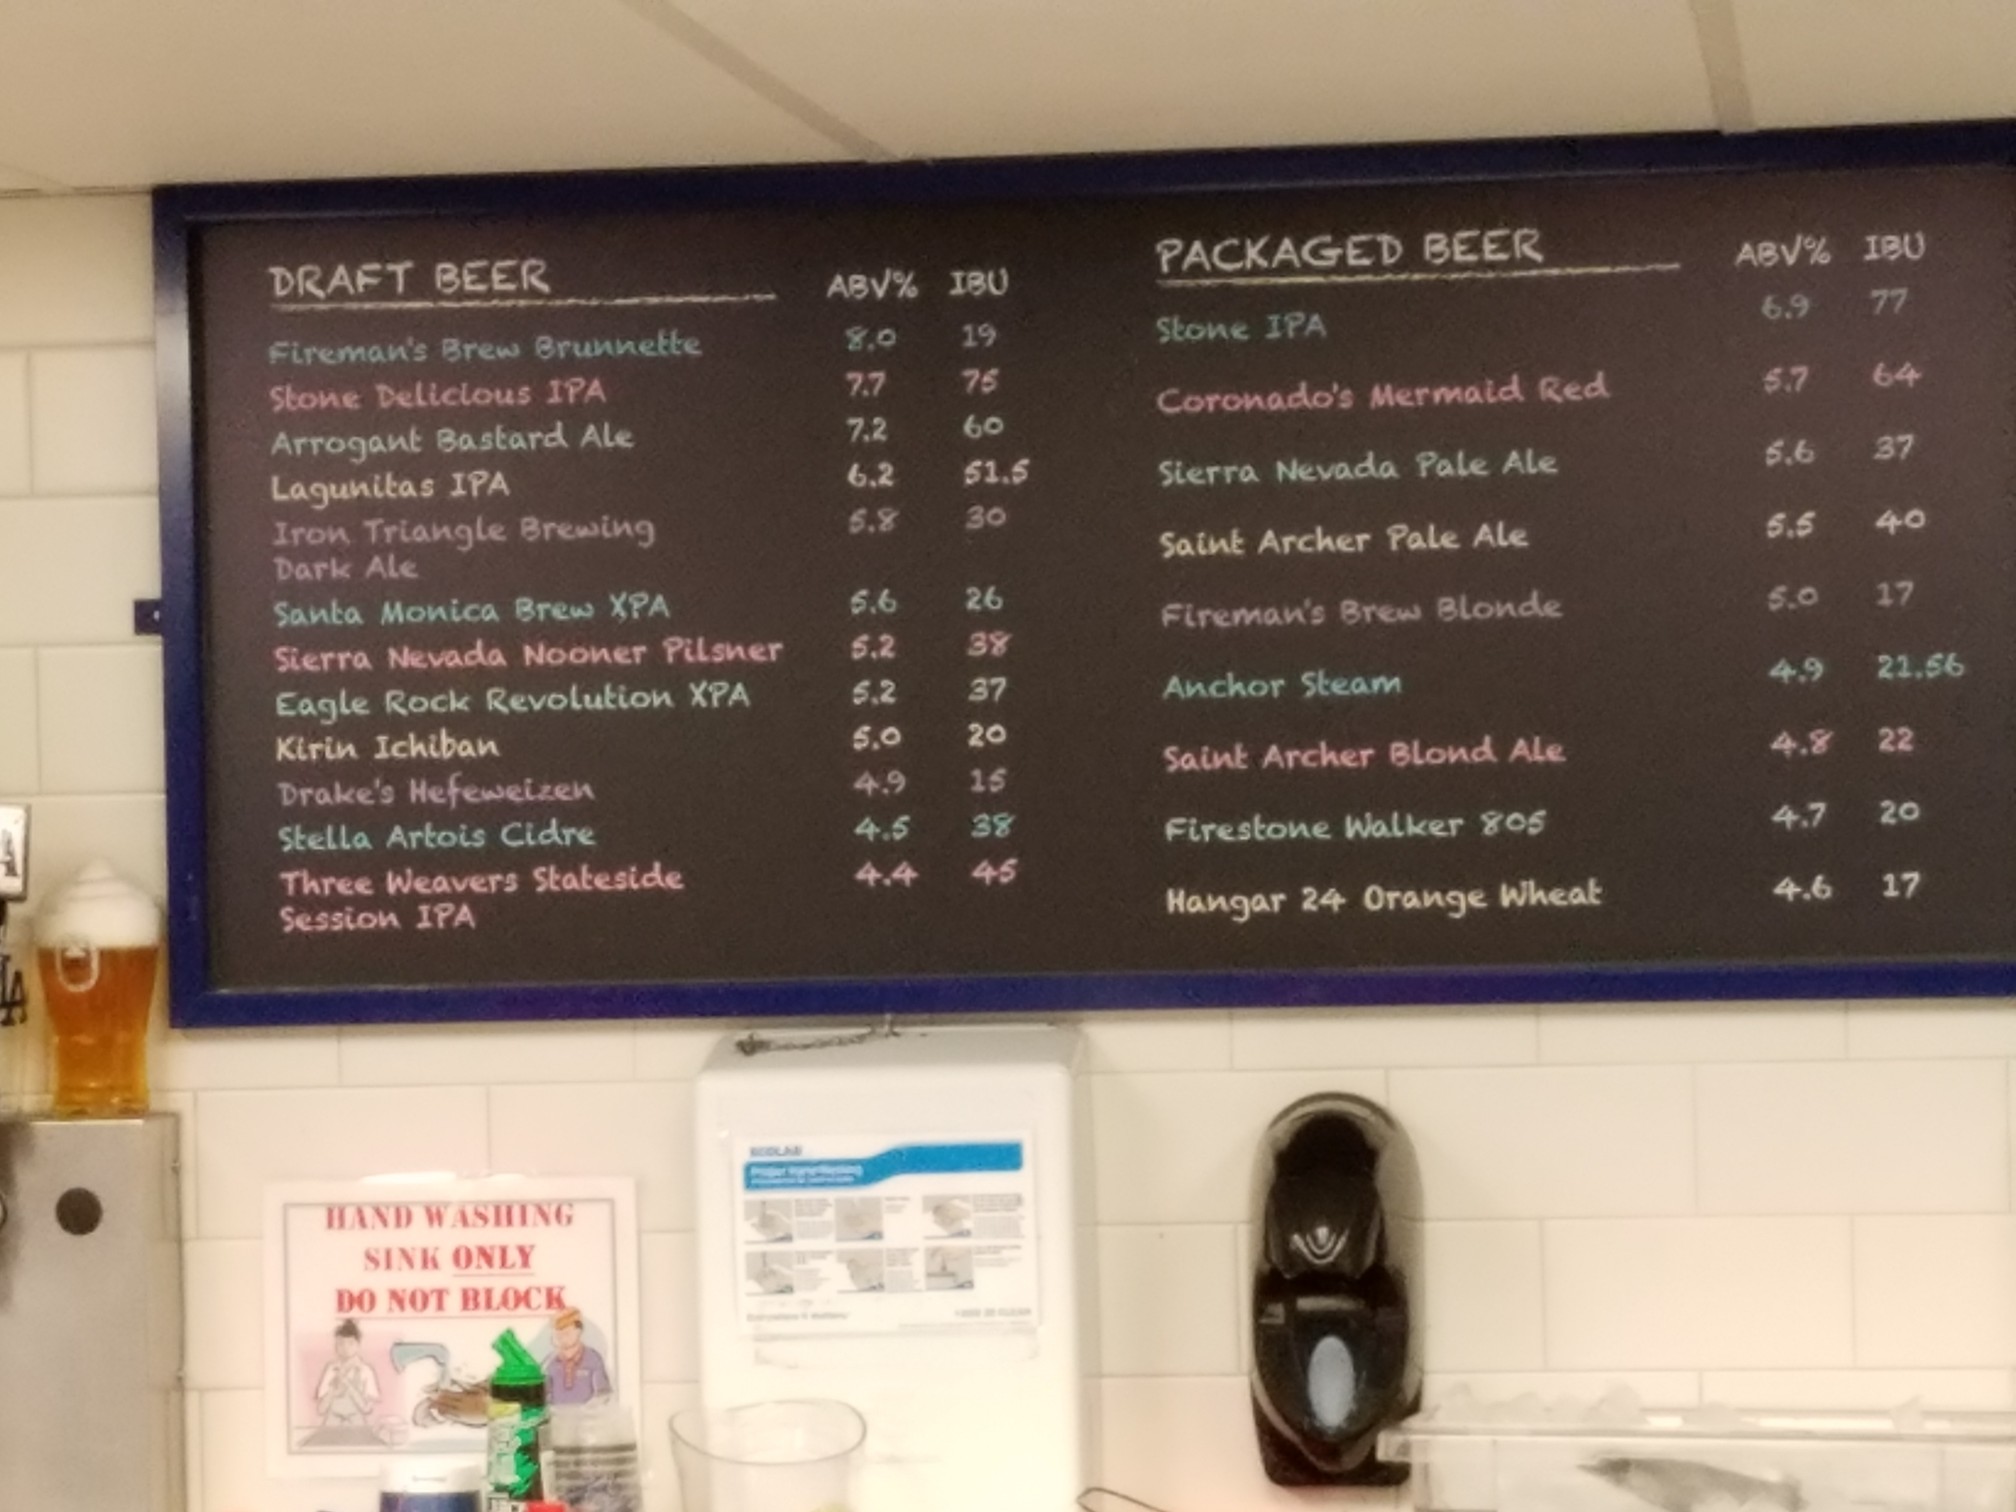 DRAFT BEER ABV% IBU
Fireman's Brew Brunnette 8.0 19
Stone Delicious IPA 7.7 75
Arrogant Bastard Ale 7.2 60
Lagunitas IPA 6.2 51.5
Iron Triangle Brewing 5.8 30
Dark Ale
Santa Monica Brew XPA 5.6 26
Sierra Nevada Nooner Pilsner 5.2 38
Eagle Rock Revolution XPA 5.2 37
Kirin Ichiban 5.0 20
Drake's Hefeweizen 4.9 15
Stella Artois Cidre 4.5 38
Three Weavers Stateside 4.4 45
Session IPA
PACKAGED BEER ABV% IBU
Stone IPA 6.9 77
Coronado's Mermaid Red 5.7 64
Sierra Nevada Pale Ale 5.6 37
Saint Archer Pale Ale 5.5 40
Fireman's Brew Blonde 5.0 17
Anchor Steam 4.9 21.56
Saint Archer Blond Ale 4.8 22
Firestone Walker 805 4.7 20
Hangar 24 Orange Wheat 4.6 17
A
LA
HAND WASHING
SINK ONLY
DO NOT BLOCK
ECOLAB